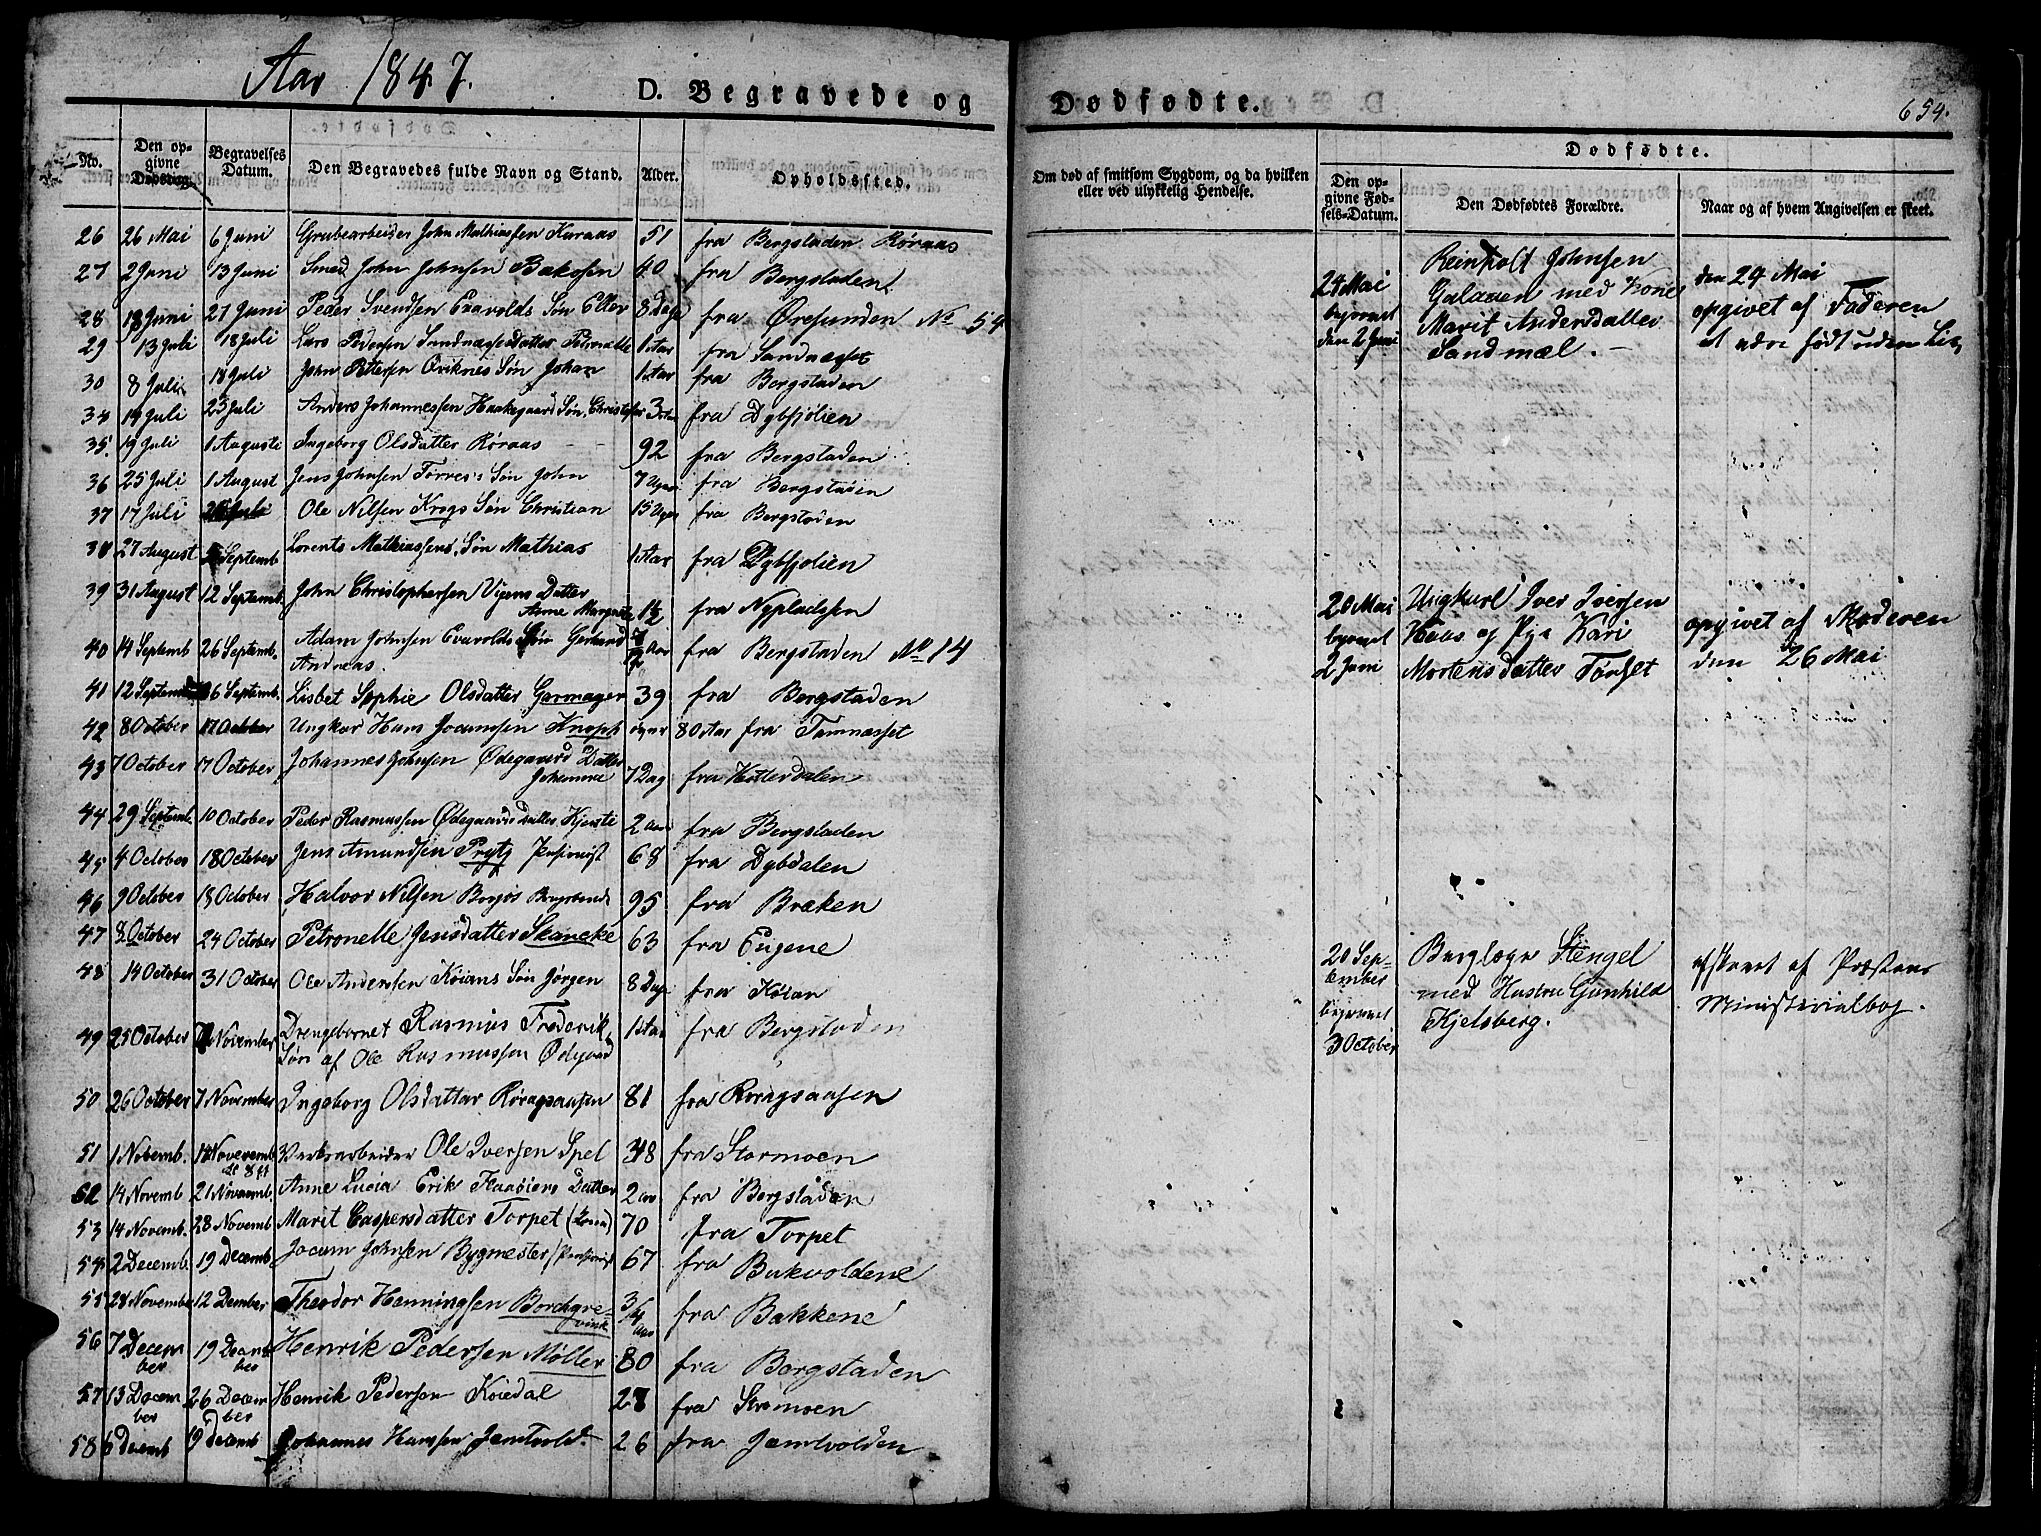 Aar 1847.
D. Begravede og Dødfødte.
654.
No. Den opgivne Dødsdag. Begravelses Datum. Den Begravedes fulde Navn og Stand. Alder. Opholdssted.
Om død af smitsom Sygdom, og da hvilken eller ved ulykkelig Hendelse.
Dødfødte.
Den opgivne Fødsels-Datum. Den Dødfødtes Forældre. Naar og af hvem Angivelsen er skeet.
26 26 Mai 6 Juni Grubearbeider John Mathiassen Kuraas 51 fra Bergstaden Røraas
27 2 Juni 13 Juni Smed John Johnsen Bakosen 40 fra Bergstaden
28 18 Juni 27 Juni Peder Svendsen Evavolds Søn Eller 8 Dage fra Øresunden No 54
29 13 Juli 18 Juli Lars Pedersen Sundnæsses Datter Petronelle 1 Aar fra Sandnæset
30 8 Juli 18 Juli John Pettersen Øviknes Søn Johan 1 Aar fra Bergstaden
34 19 Juli 25 Juli Anders Johannessen Haakegaard Søn Christopher 3 fra Dybsjølien
35. 19 Juli 1 Augusti Ingeborg Olsdatter Røraas 92 fra Bergstaden
36 25 Juli 1 August Jens Johnsen Torres's Søn John 7 Uger fra Bergstaden
37 17 Juli Juli Ole Nilsen Krogs Søn Christian 15 Uger fra Bergstaden
38 27 August Septemb Lorents Mathiassens Søn Mathias 1 Aar fra Dybsjølien
39 31 August 12 Septemb. John Christophersen Vigens Datter
Anne Margrete 1½ fra Nypladsen
40 14 Septemb 26 Septemb. Adam Johnsen Evavolds Søn Gerhard
Andreas. Aar fra Bergstaden No 14
41 12 Septemb 26 Septemb. Lisbet Sophie Olsdatter Garmager 39 fra Bergstaden
42 8 October 17 October Ungkar Hans Jocumsen Knoph over 80 Aar fra Tamnasset
43 7 October 17 October Johannes Johnsen Ødegaard Datter
Johanna 7 Dag fra Hitterdalen
44 29 Septemb. 10 October Peder Rasmussen Ødegaards Datter Kjersti 2 aar fra Bergstaden
45 4 October 18 October Jens Amundsen Prytz Pensionist 68 fra Dybdalen
46 9 October 18 October Halvor Nilsen Borgos Bergsbonde 95 fra Bræken
47 8 October 24 October Petronelle Jensdatter Skancke 63 fra Eugene
48 14 October 31 October Ole Andersen Koians Søn Jørgen 8 Dage fra Koian
49 25 October 7 November Drengebarnet Rasmus Frederik 1 Aar fra Bergstaden
Søn af Ole Rasmussen Ødegaard
50 26 October 7 November Ingeborg Olsdatter Røragsaasen 81 fra Røragsaasen
51 1 Novemb. 14 Novemb. Verksarbeider Ole Iversen Spel 48 fra Stormoen
52 14 Novemb 21 Novemb Anne Lucia Erik Kaasiens Datter 2 aar fra Bergstaden
53 14 Novemb. 28 Novemb Marit Caspersdatter Torpet (Kone) 70 fra Torpet
54 2 Decemb 19 Decemb Jocum Johnsen Bygmester Pensionist 67 fra Bukvoldene
55 28 November 12 Dember Theodor Henningsen Borchgrevink 3/4 Aar fra Bakkene
56 7 December 19 December Henrik Pedersen Møller 80 fra Bergstaden
57 13 December 26 December Henrik Pedersen Koiedal 27 fra Stromoen
58 6 Decemb 19 Decemb Johannes Hanssen Jamtvold 26 fra Jamtvolden
24 Mai begravet den 2 Juni
Reinholt Johnsen
Galaaen med Kone
Marit Andersdatter
Sandmæl.
den 24 Mai
opgivet af Faderen
at være født uden Liv
20 Mai begravet 2 Juni
Ungkarl Iver Iversen
Haas og Pige Kari
Mortensdatter Tønset
opgivet af Moderen
den 26 Mai
20 September begravet 3 October
Berglæge Stengel
med Hustru Gunhild
Hjelsberg.
afskrevet af Præstens
Ministerialbog.